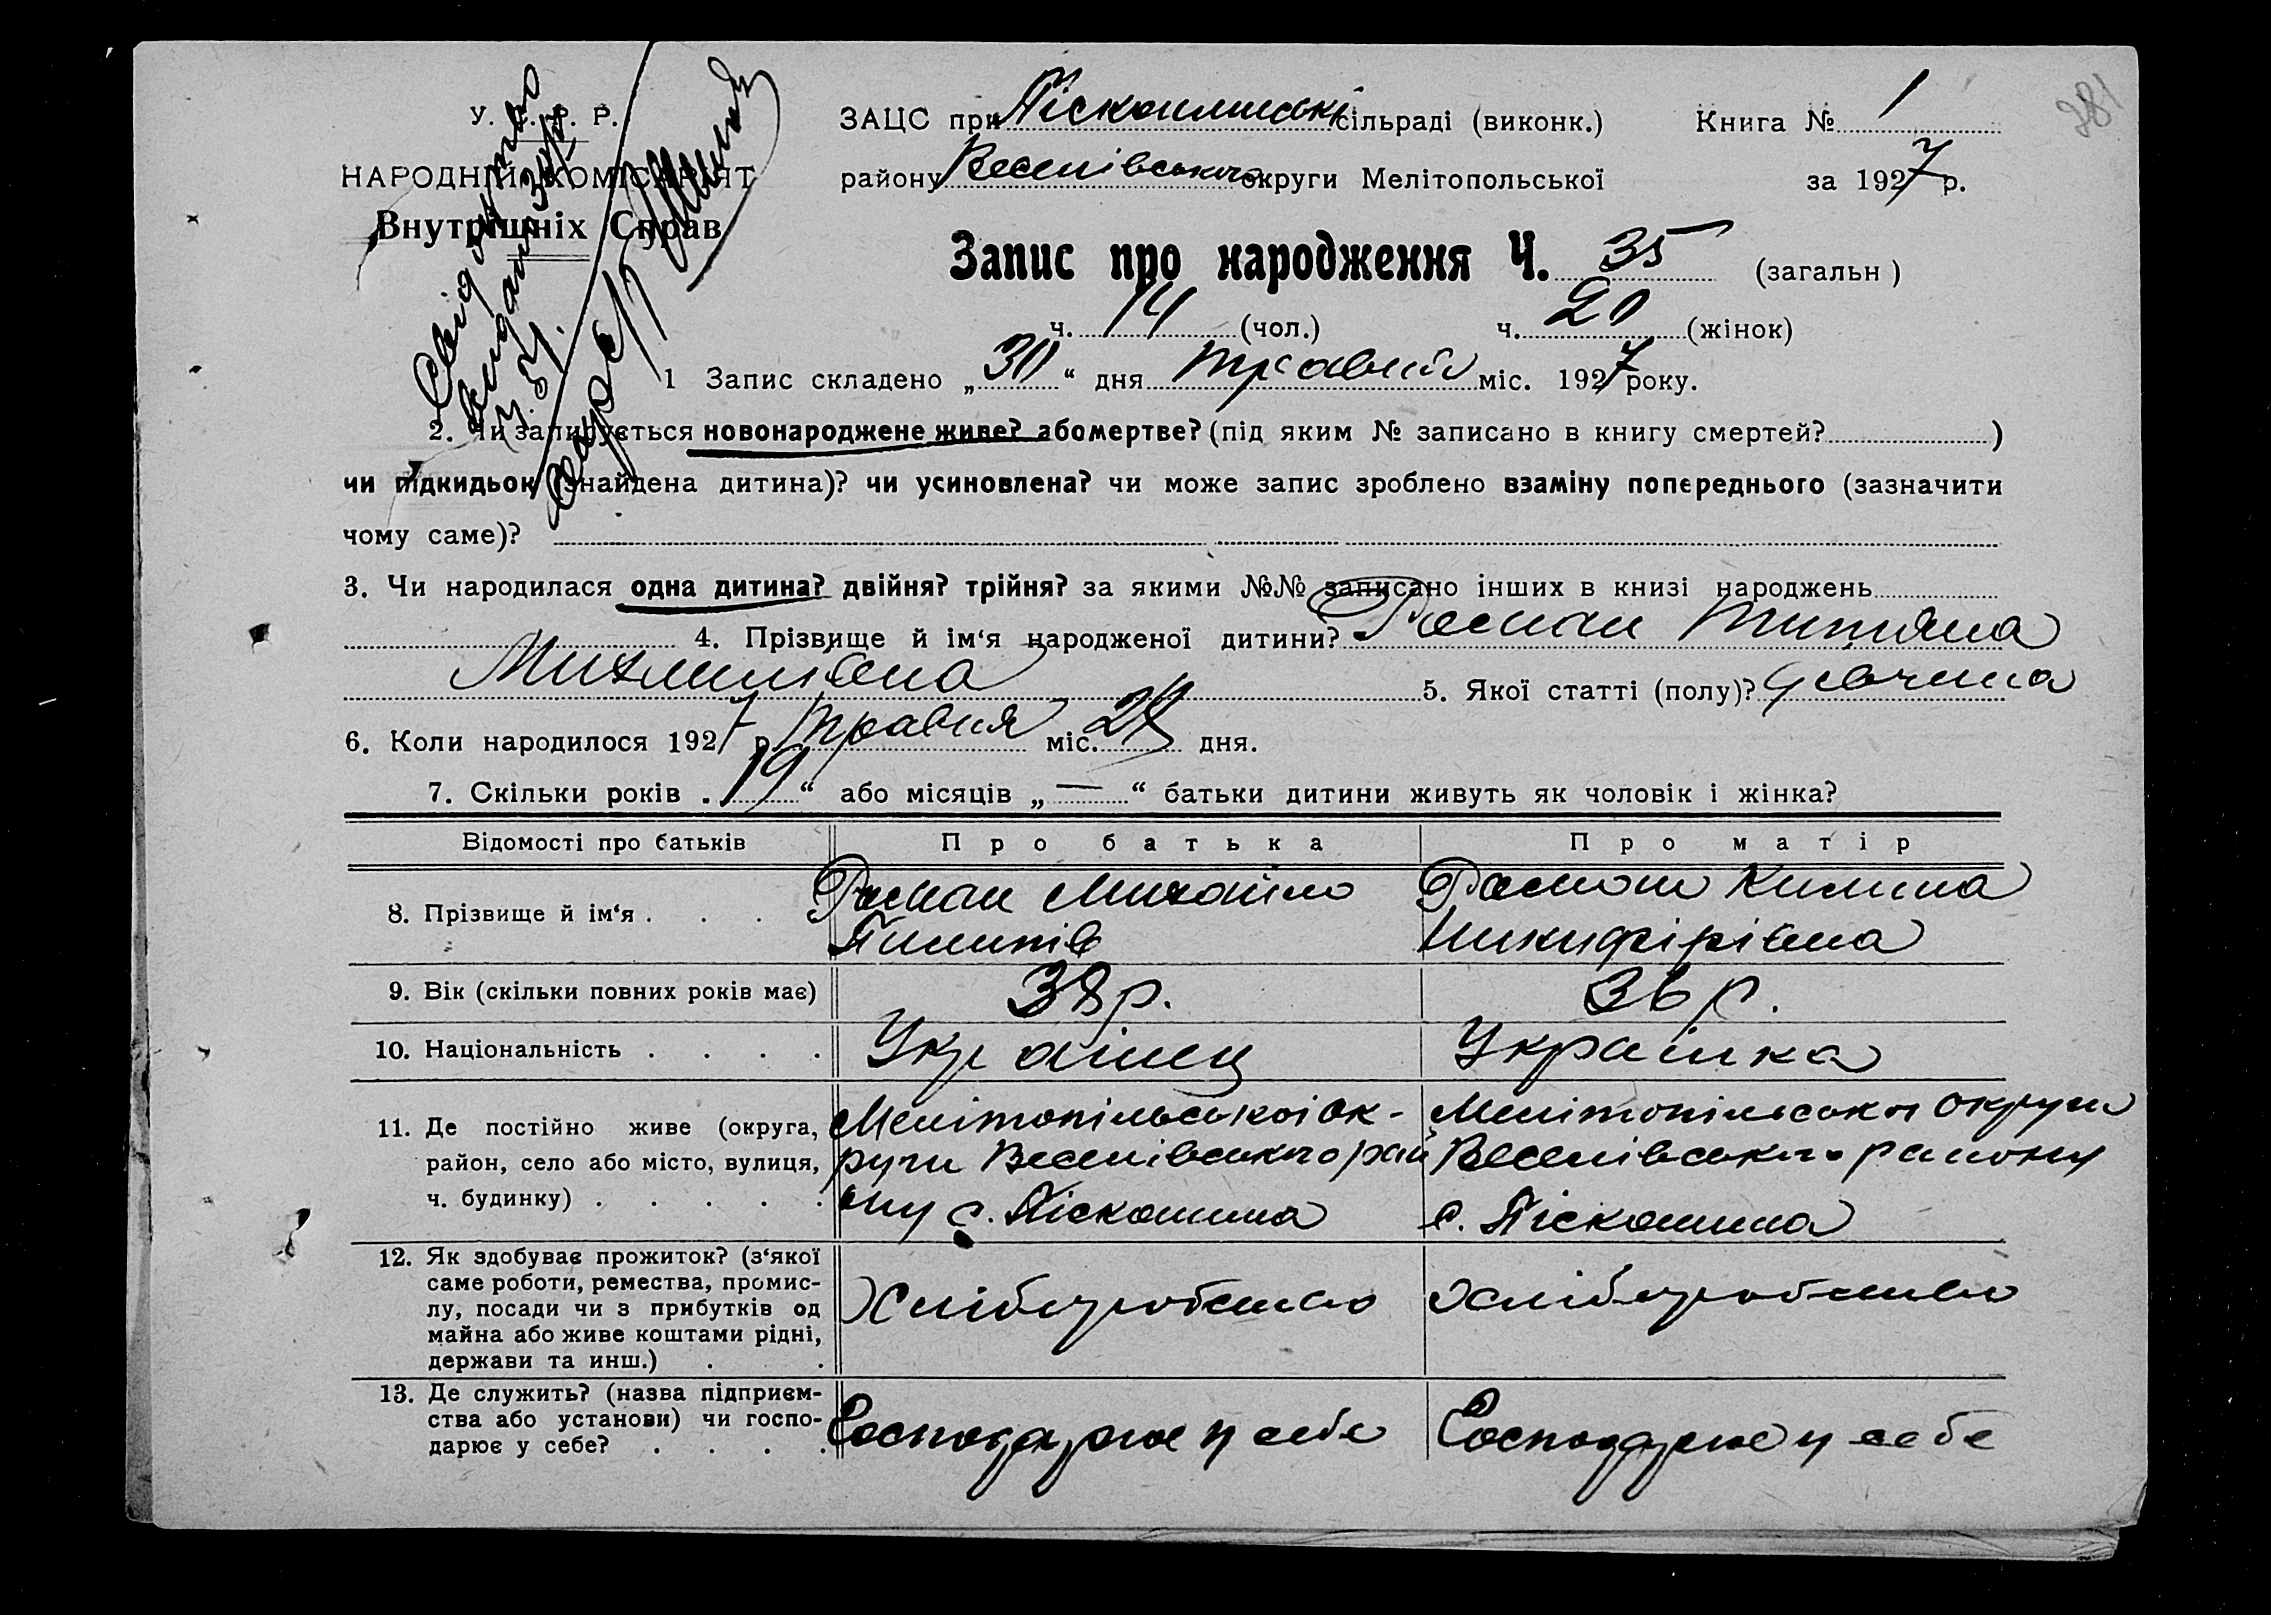 381
У. С. Р. Р.
НАРОДНІЙ КОМІСАРІЯТ
Внутрішніх Справ
Свідоцтво
видано 30/V
ЗАЦС при Піскошинські сільраді (виконк.) Книга № 1
району Веселівського округи Мелітопольської за 1927 р.
Запис про народження Ч. 35 (загальн)
ч. 14 (чол.) ч. 21 (жінок)
1 Запис складено „30“ дня травня міс. 1927 року.
2. Чи записується новонароджене живе? або мертве? (під яким № записано в книгу смертей? )
чи підкидьок (знайдена дитина)? чи усиновлена? чи може запис зроблено взаміну попереднього (зазначити
чому саме)?
3. Чи народилася одна дитина? двійня? трійня? за якими №№ записано інших в книзі народжень
4. Прізвище й ім‘я народженої дитини? Роман Титяна
Михайлівна 5. Якої статті (полу)? дівчина
6. Коли народилося 1927 р. травня міс. 24 дня.
7. Скільки років „19“ або місяців „—“ батьки дитини живуть як чоловік і жінка?
Відомості про батьків Про батька Про матір
8. Прізвище й ім‘я . . . Роман Михайло Роман Килина
Пилипів Никифірівна
9. Вік (скільки повних років має) 38 р. 36 р.
10. Національність . . . . Українец Українка
11. Де постійно живе (округа, Мелітопільської Ок- Мелітопільської округи
район, село або місто, вулиця, руги Веселівського рай Веселівського району
ч. будинку) . . . . . ону с. Піскошина с. Піскошина
12. Як здобуває прожиток? (з‘якої
саме роботи, ремества, промис-
лу, посади чи з прибутків од Хліборобство хліборобство
майна або живе коштами рідні,
держави та инш.) . .
13. Де служить? (назва підприєм-
ства або установи) чи госпо- Господарює у себе Господарює у себе
дарює у себе? . . . .